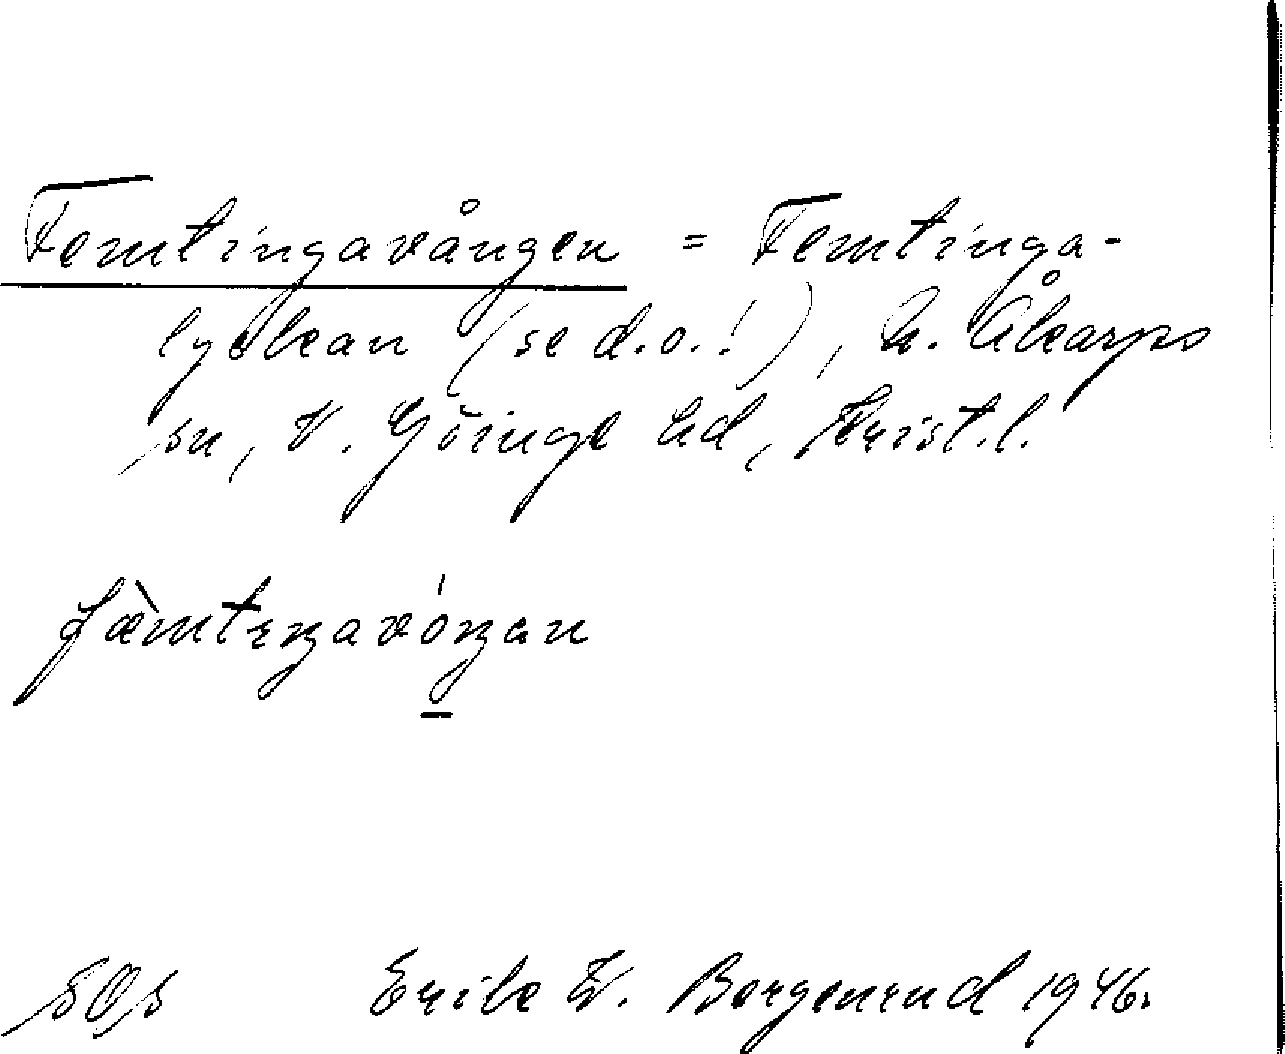 Femtingavången = Femtinga-
lyckan (se d.o.!), N. Åkarps
sn, V. Göinge hd, Krist.l.
fæ̀mtıŋavóŋan
Erik W. Borgenrud 1946.